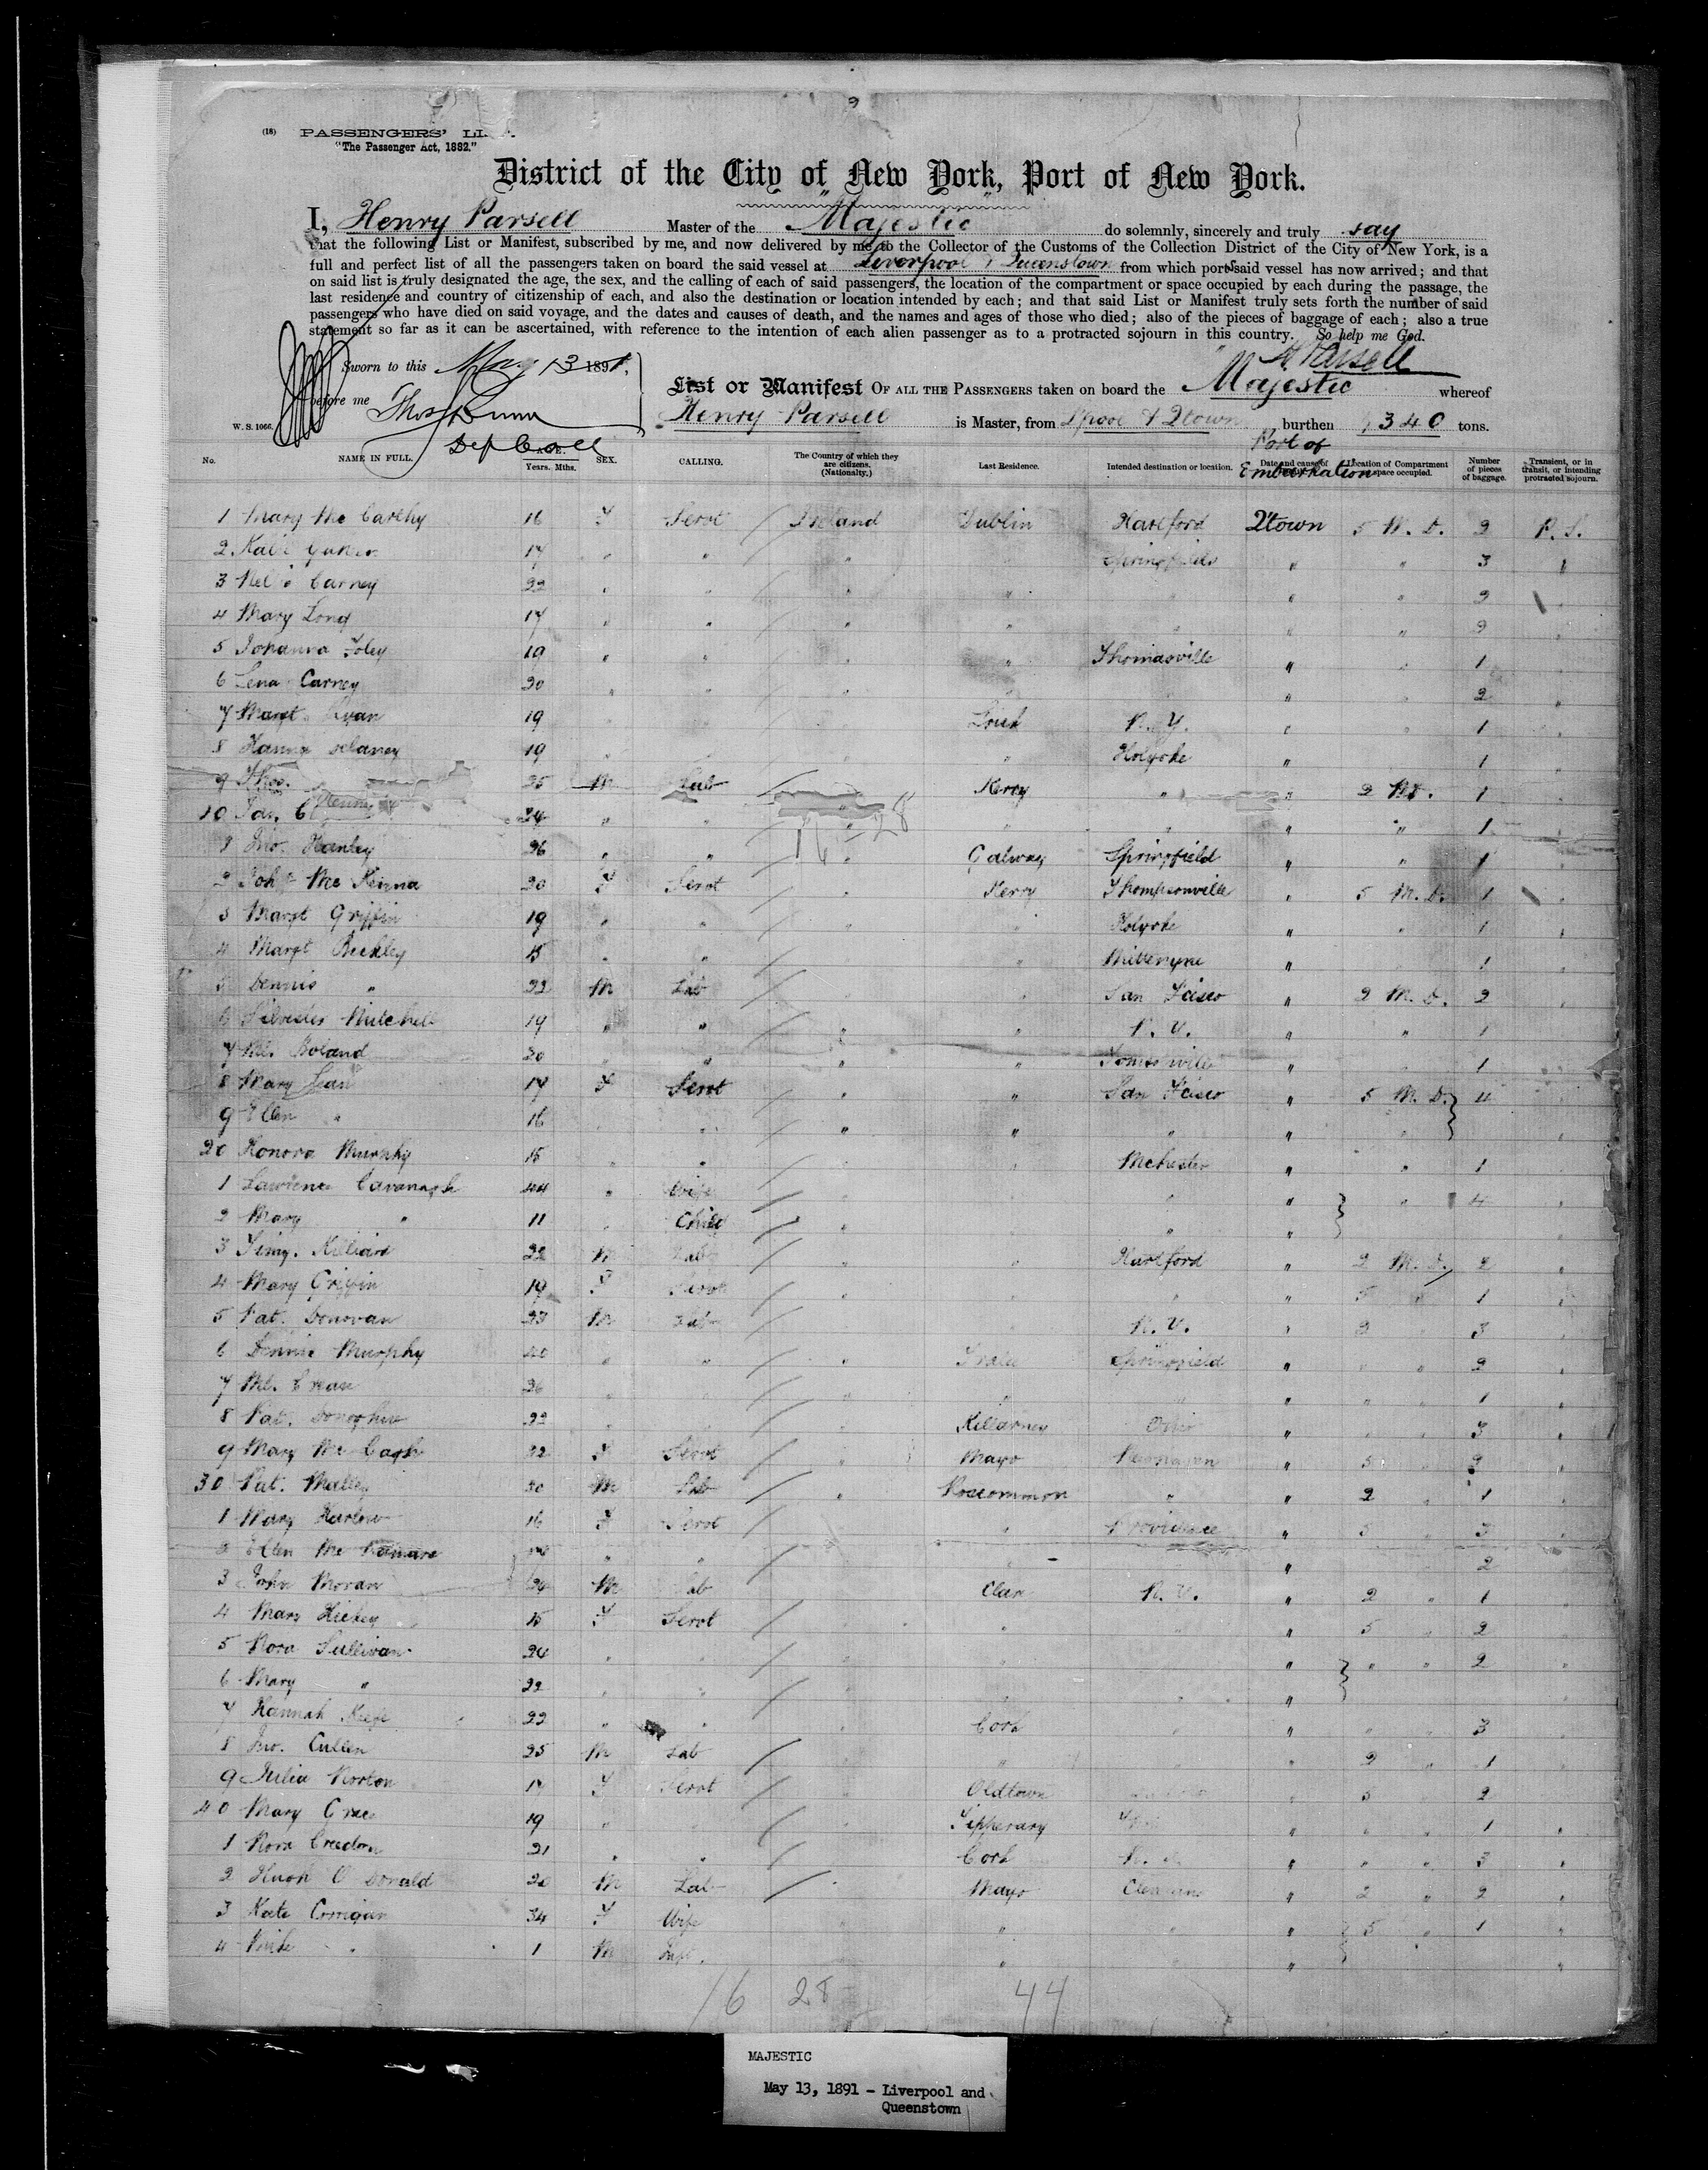 (18) PASSENGERS' LI
"The Passenger Act, 1882."
District of the City of New York, Port of New York.
I, Henry Parsell Master of the "Majestic" do solemnly, sincerely and truly say
that the following List or Manifest, subscribed by me, and now delivered by me to the Collector of the Customs of the Collection District of the City of New York, is a
full and perfect list of all the passengers taken on board the said vessel at Liverpool & Queenstown from which ports said vessel has now arrived; and that
on said list is truly designated the age, the sex, and the calling of each of said passengers, the location of the compartment or space occupied by each during the passage, the
last residence and country of citizenship of each, and also the destination or location intended by each; and that said List or Manifest truly sets forth the number of said
passengers who have died on said voyage, and the dates and causes of death, and the names and ages of those who died; also of the pieces of baggage of each; also a true
statement so far as it can be ascertained, with reference to the intention of each alien passenger as to a protracted sojourn in this country. So help me God.
H Parsell
Sworn to this May 13 1891,
before me Thos
Dep Coll
W. S. 1066.
List or Manifest OF ALL THE PASSENGERS taken on board the "Majestic whereof
Henry Parsell is Master, from L'pool & Q'town burthen 340 tons.
Port of
Embarkation
No. NAME IN FULL. AGE. Years. Mths. SEX. CALLING. The Country of which they are citizens. (Nationality.) Last Residence. Intended destination or location. Date and cause of Location of Compartment space occupied. Number of pieces of baggage. Transient, or in transit, or intending protracted sojourn.
1 Mary Mc Carthy 16 F Servt / Ireland Dublin Hartford Q'town 5 M. D. 2 P. S.
2 17 " " / " Springfield " " 3 "
3 Nellie Carney 22 " " / " " " " 2 "
4 Mary Long 17 " " / " " " " " 2 "
5 Johanna Foley 19 " " / " " Thomasville " " 1 "
6 Lena Carney 20 " " " " " " 2 "
7 Margt. Ryan 19 N. Y. " 1 "
8 Hanna Delaney 19 " " Holyoke " 1 "
9 Thos. 25 M Lab Kerry " " 2 M. 1 "
10 Jas. 24 " " " " " " " 1 "
1 Jno. Hanley 26 " " / " Galway Springfield " " 1 "
2 Joh Mc Kenna 20 F Servt / " Kerry Thompsonville " 5 M. D. 1 "
3 Margt Griffin 19 " " / " " Holyoke " " 1 "
4 Margt Buckley 15 " " / " " 1 "
5 Dennis " 22 M Lab / " " San Fcisco " 2 M. D. 2 "
6 Silvester Mitchell 19 " " / " " N. Y. " " 1
7 Ml. Boland 20 " " / " " " 1 "
8 Mary 17 F Servt / " " San Fcisco " 5 M. D. 4
9 Ellen " 16 " / " " " " " "
20 Honora Murphy 15 " " / " Mchester " " 1 "
1 Cavanagh 44 " Wife / " " " " 4 "
2 Mary " 11 " Child / " " " "
3 Timy. 22 M Lab / " " Hartford " 2 M. D. 2 "
4 Mary Griffin 19 F Servt / " " " 5 " 1 "
5 Pat. Donovan 23 M Lab / " N. Y. " 2 3 "
6 Dennis Murphy 40 " " / " Tralee Springfield " " " 2 "
7 Ml. Crean 26 " / " " " " " 1 "
8 Pat. 22 " Killarney Ohio " " 3 "
9 Mary Mc 22 F Servt / " Mayo " 5 " 2 "
30 Pat. Malley 20 M Lab / " Roscommon " " 2 " 1 "
1 Mary 16 F Servt / " Providence " 5 " 3 "
2 Ellen Mc " " / " " 2 "
3 John Moran 24 M Lab / Clare N. Y. " 2 " 1 "
4 Mary Hickey 15 F Servt / " " " 5 " 2 "
5 Nora Sullivan 24 " " / " " " " 2 "
6 Mary " 22 " " / " " " "
7 Hannah Keefe 22 " " " Cork " " " " 3 "
8 Jno. Cullen 25 M Lab / " " " 2 " 1 "
9 Julia Norton 17 F Servt / " Oldtown " 5 " 2 "
40 Mary 19 " " / " Tipperary " " " 1 "
1 Nora Creedon 21 " " / " Cork " " " 3 "
2 Hugh O Donald 20 M Lab / " Mayo " 2 " 2 "
3 Kate Corrigan 34 F Wife " " " " 5 " 1 "
4 " 1 M Inft. " " " "
16 28 44
MAJESTIC
May 13, 1891 - Liverpool and
Queenstown